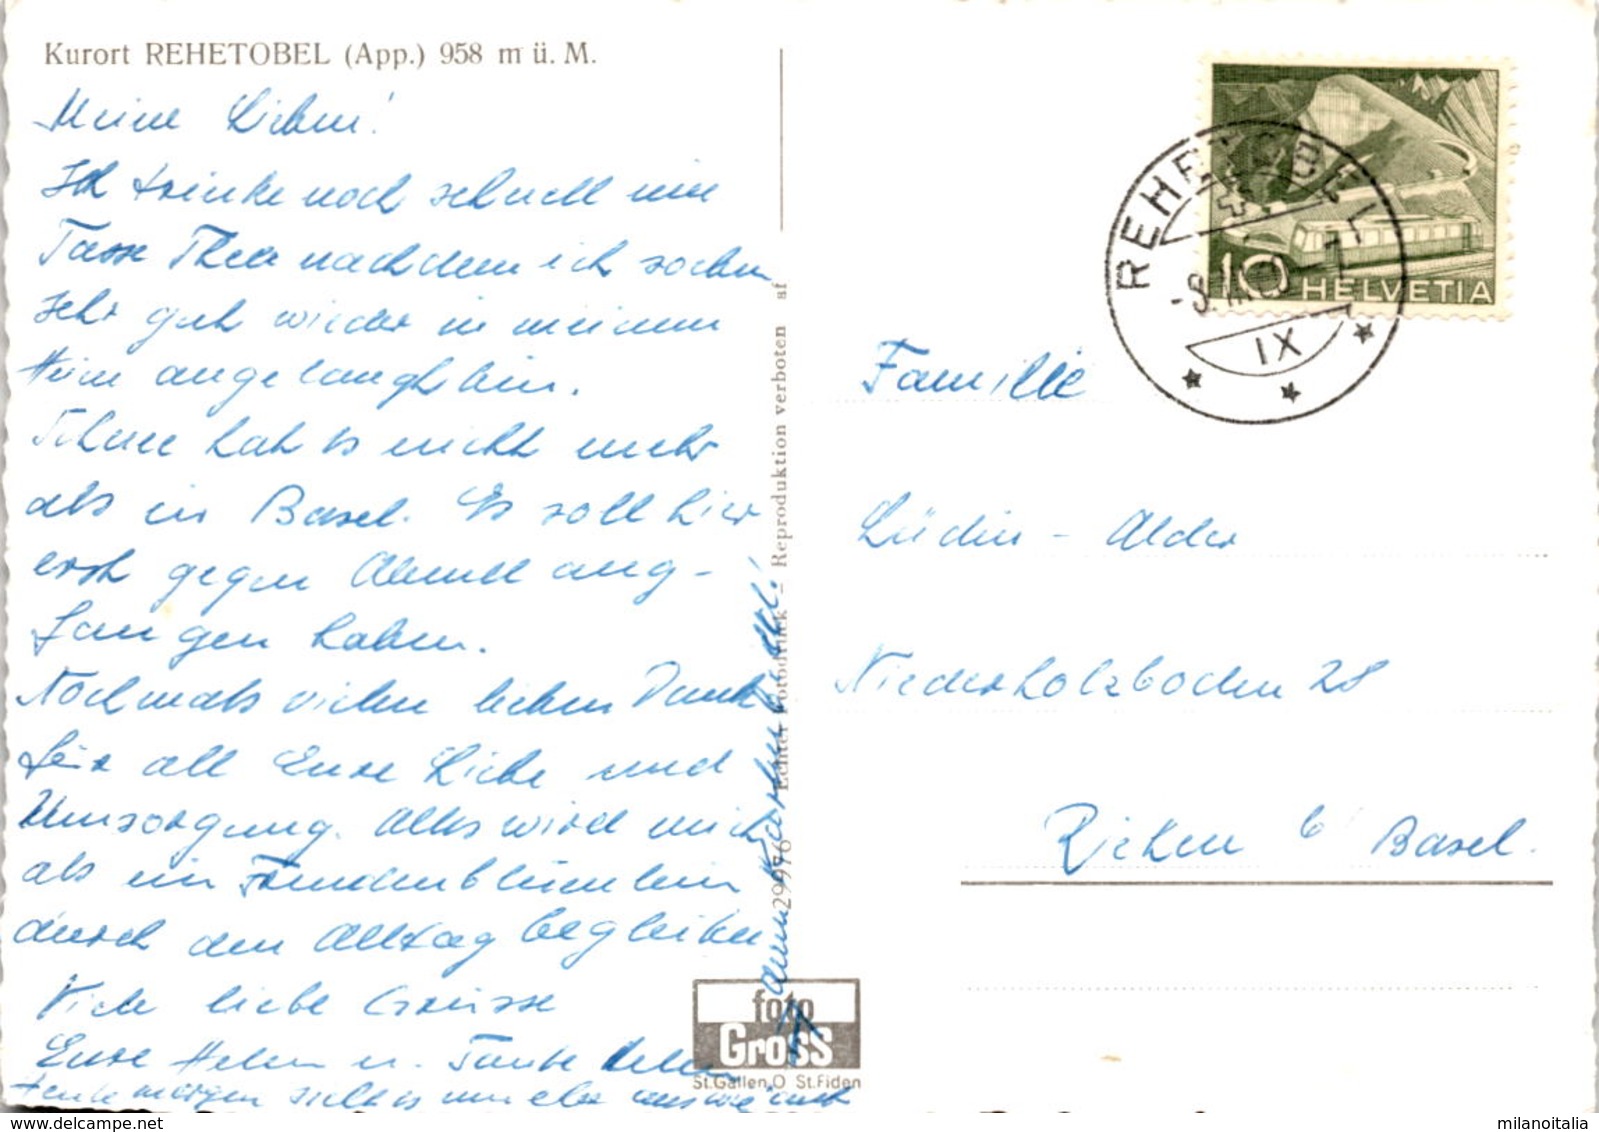 Kurort REHETOBEL (App.) 958 m ü. M.
Meine Lieben!
Ich trinke noch schnell eine
Tasse Thee nachdem ich soeben
sehr gut wieder in meinem
Heim angelangt bin.
Schnee hat es nicht mehr
als in Basel. Es soll hier
erst gegen Abend ang-
fangen haben.
Nochmals vielen lieben Dank
für all Eure Liebe und
Umsorgung. Alles wird mich
als ein Freudenblümlein
durch den Alltag begleiten
Viele liebe Grüsse
Eure Helen u. Tante Helen
Heute morgen sieht es nun eher aus wie
29976 Echter Fotodruck – Reproduktion verboten af
foto
Gross
St.Gallen O St.Fiden
10 HELVETIA
REHETOBEL
IX
Familie
Lüdin - Alder
Niederholzboden 28
Riehen b/ Basel.
milanoitalia